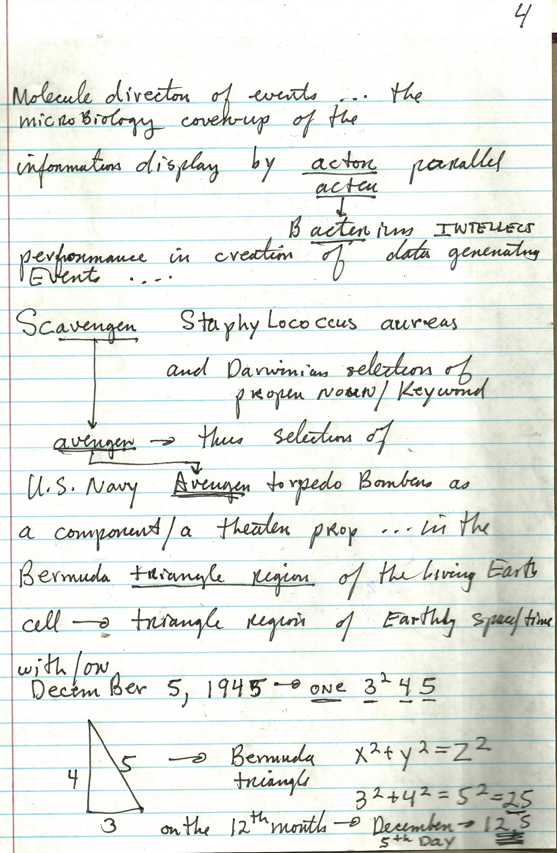 4
Molecule direction of events ... the
microBiology cover-up of the
information display by acton parallel
acter
Bacterium INTELLECS
performance in creation of data generating
Events ....
Scavenger Staphy Lococcus aureas
and Darwinian selection of
proper NOUN/Keyword
avenger → thus selection of
U.S. Navy Avenger torpedo Bombers as
a component/a theater prop ... in the
Bermuda triangle region of the living Earth
cell → triangle region of Earthly space/time
with/on
DecemBer 5, 1945 → ONE 3² 4 5
4 5 → Bermuda x²+y²=Z²
triangle
3²+4²=5²=25
3 on the 12th month → December → 12 5
5th Day